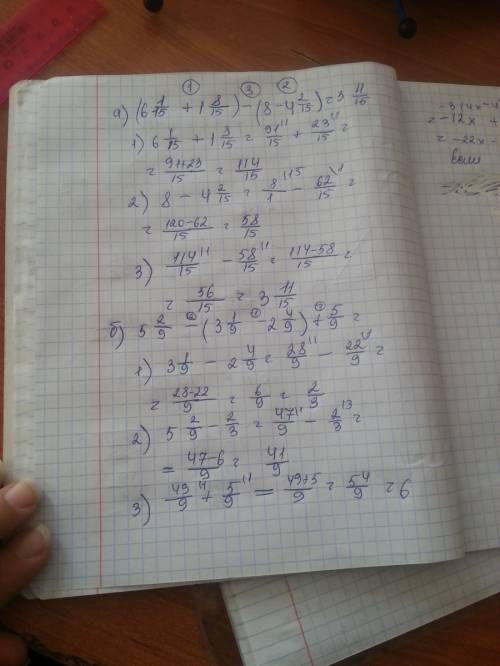 ① ③ ②
а) (6 1/15 + 1 8/15) - (8 - 4 2/15) = 3 11/15
1) 6 1/15 + 1 8/15 = 91/15 + 23/15 =
= 91+23/15 = 114/15
2) 8 - 4 2/15 = 8/1 - 62/15 =
= 120-62/15 = 58/15
3) 114/15 - 58/15 = 114-58/15 =
= 56/15 = 3 11/15
б) 5 2/9 - (3 1/9 - 2 4/9) + 5/9 =
1) 3 1/9 - 2 4/9 = 28/9 - 22/9 =
= 28-22/9 = 6/9 = 2/3
2) 5 2/9 - 2/3 = 47/9 - 2/3 =
= 47-6/9 = 41/9
3) 49/9 + 5/9 = 49+5/9 = 54/9 = 6
= -12x +
= -22x -